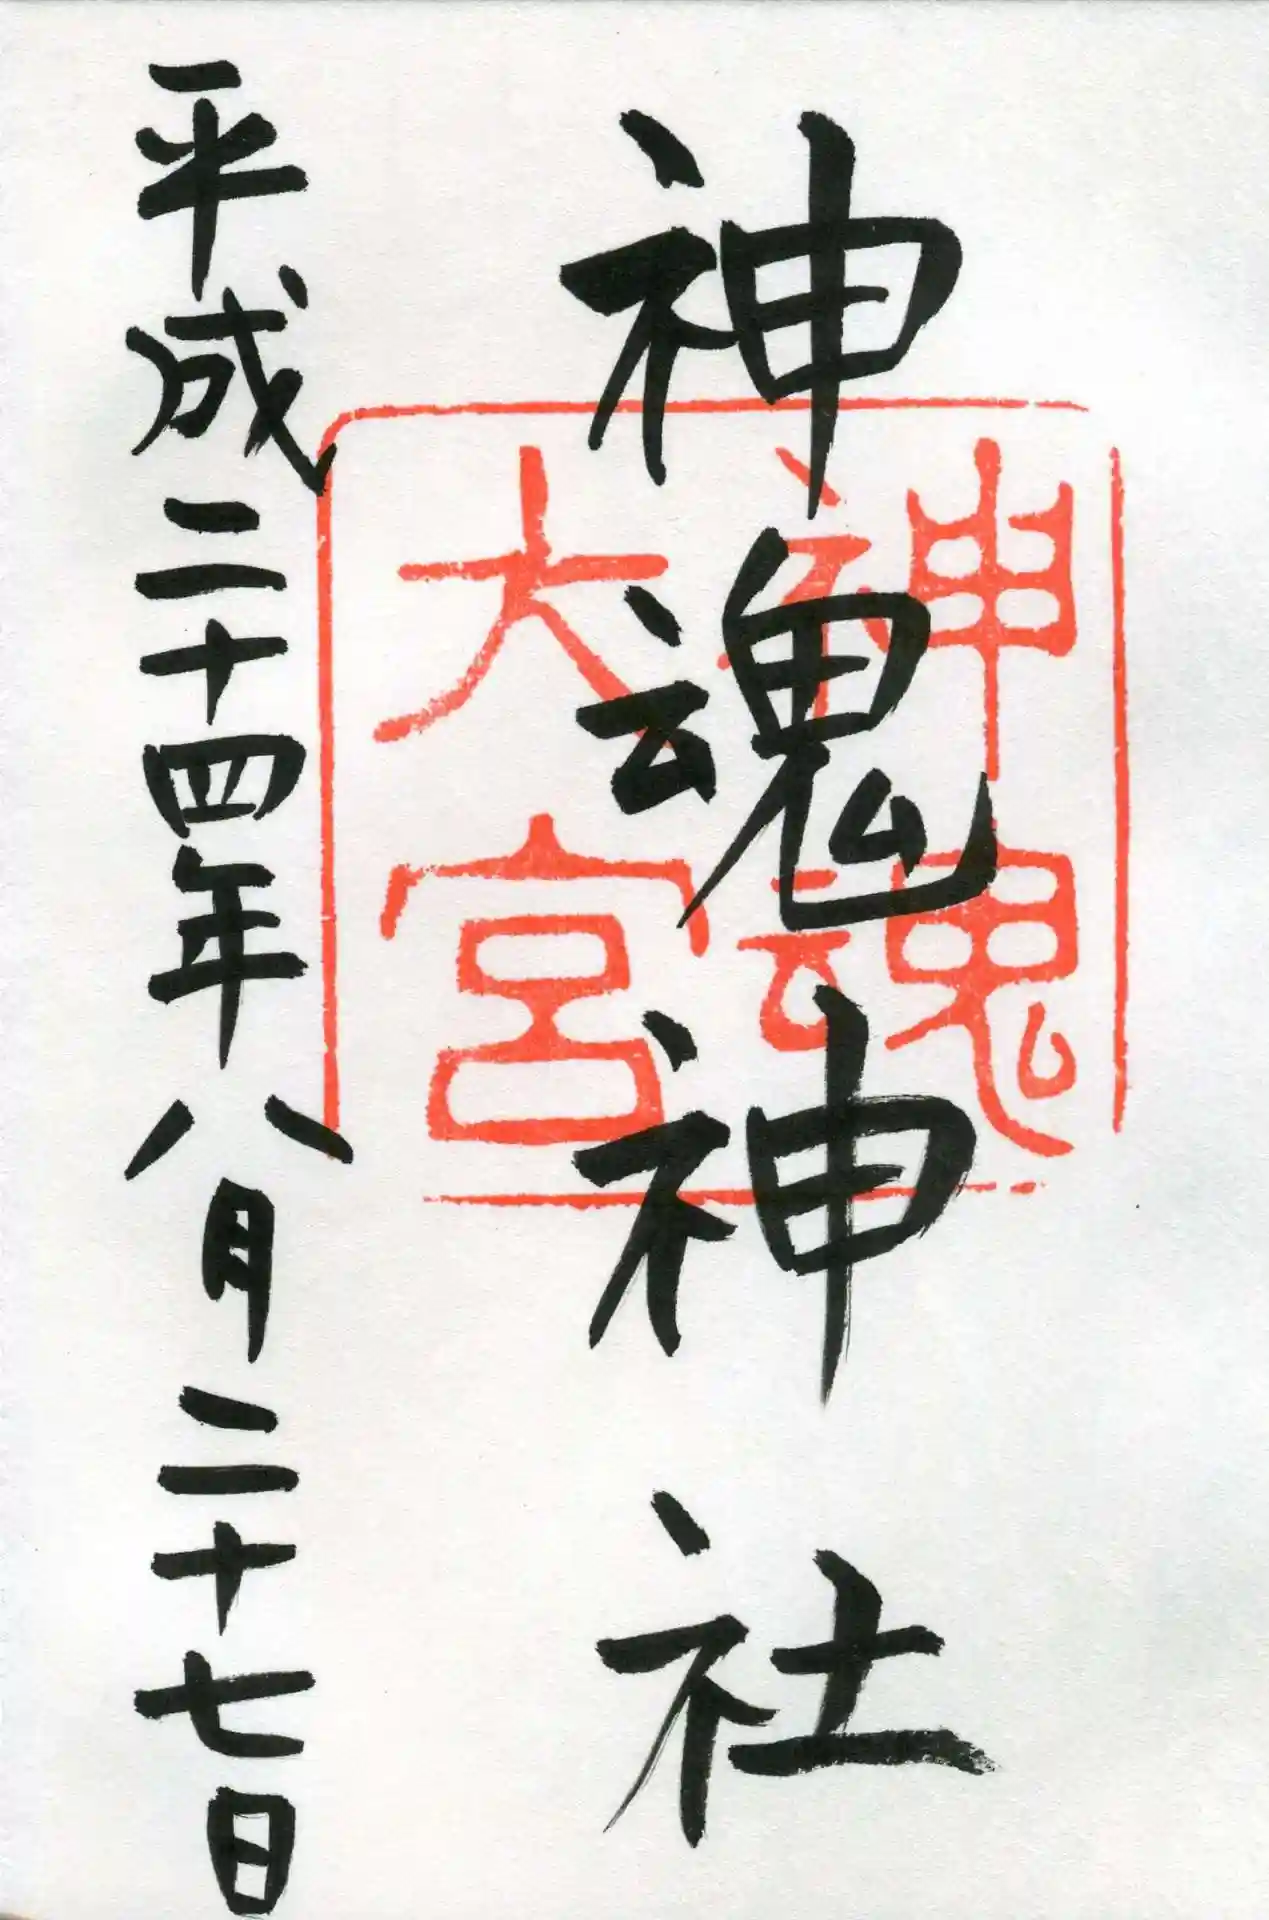 神魂神社
神魂
大宮
平成二十四年八月二十七日